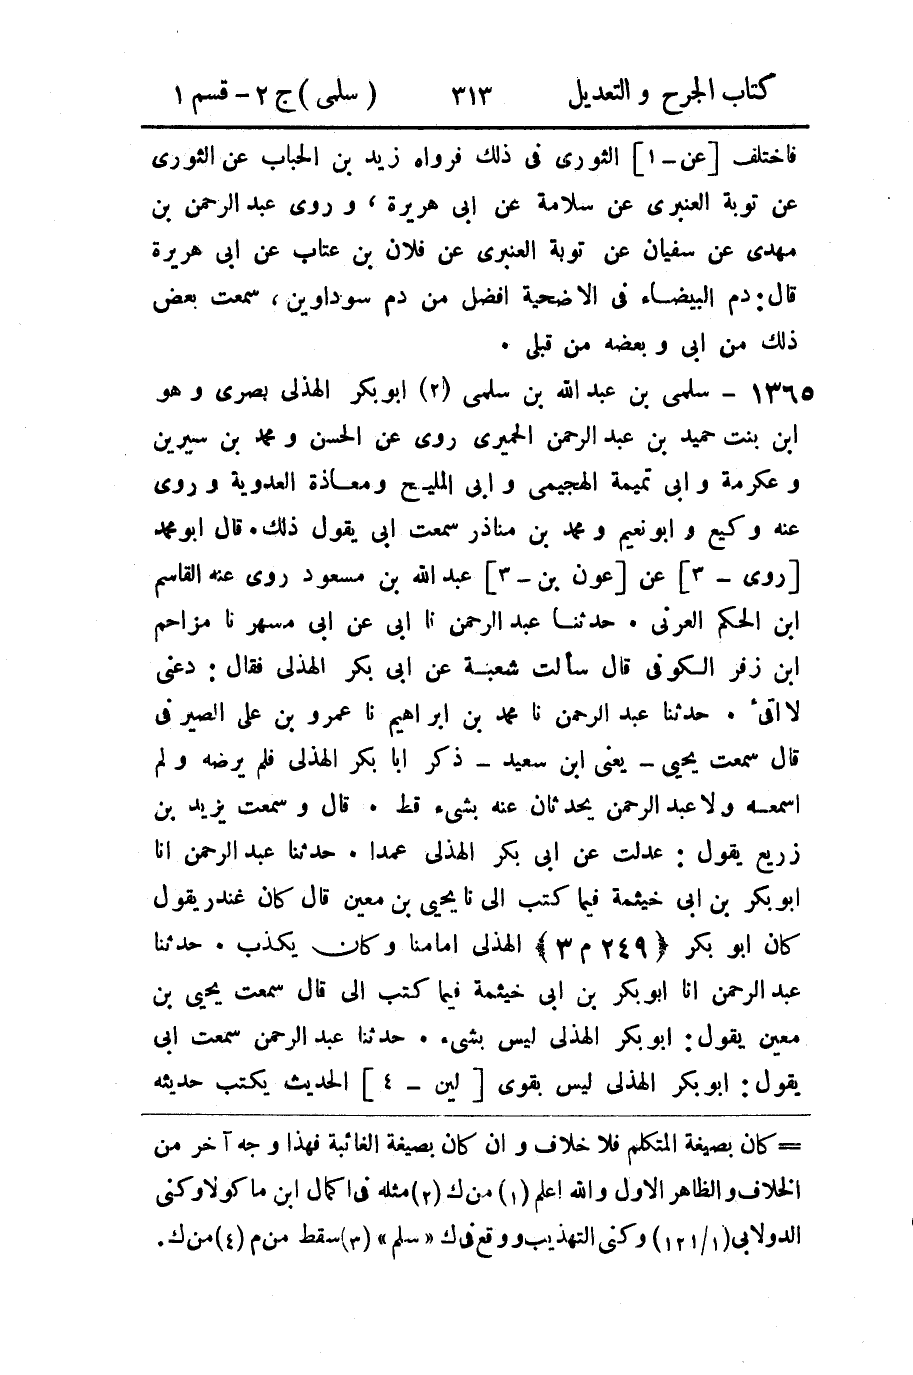 كتاب الجرح و التعديل ٣١٣ ( سلمى ) ج ٢ - قسم ١
فاختلف [عن - ١] الثورى فى ذلك فرواه زيد بن الحباب عن الثورى
عن توبة العنبرى عن سلامة عن ابى هريرة ، و روى عبد الرحمن بن
مهدى عن سفيان عن توبة العنبرى عن فلان بن عتاب عن ابى هريرة
قال: دم البيضاء فى الاضحية افضل من دم سوداوين ، سمعت بعض
ذلك من ابى و بعضه من قبلى .
١٣٦٥ - سلمى بن عبد الله بن سلمى (٢) ابوبكر الهذلى بصرى و هو
ابن بنت حميد بن عبد الرحمن الحميرى روى عن الحسن و محمد بن سيرين
و عكرمة و ابى تميمة الهجيمى و ابى المليح و معاذة العدوية و روى
عنه وكيع و ابو نعيم و محمد بن مناذر سمعت ابى يقول ذلك . قال ابو محمد
[روى - ٣] عن [عون بن - ٣] عبد الله بن مسعود روى عنه القاسم
ابن الحكم العرنى . حدثنا عبد الرحمن نا ابى عن ابى مسهر نا مزاحم
ابن زفر الكوفى قال سألت شعبة عن ابى بكر الهذلى فقال : دعنى
لا اقىء . حدثنا عبد الرحمن نا محمد بن ابراهيم نا عمرو بن على الصيرفى
قال سمعت يحيى - يعنى ابن سعيد - ذكر ابا بكر الهذلى فلم يرضه و لم
اسمعه ولا عبد الرحمن يحدثان عنه بشىء قط . قال و سمعت يزيد بن
زريع يقول : عدلت عن ابى بكر الهذلى عمدا . حدثنا عبد الرحمن انا
ابو بكر بن ابى خيثمة فيما كتب الى نا يحيى بن معين قال كان غندر يقول
كان ابو بكر ﴿٢٤٩ م ٣﴾ الهذلى امامنا وكان يكذب . حدثنا
عبد الرحمن انا ابو بكر بن ابى خيثمة فيما كتب الى قال سمعت يحيى بن
معين يقول: ابو بكر الهذلى ليس بشىء . حدثنا عبد الرحمن سمعت ابى
يقول: ابو بكر الهذلى ليس بقوى [ لين - ٤ ] الحديث يكتب حديثه
= كان بصيغة المتكلم فلا خلاف و ان كان بصيغة الغائبة فهذا وجه آخر من
الخلاف والظاهر الاول والله اعلم (١) من ك (٢) مثله فى اكمال ابن ماكولا وكنى
الدولابى (١/ ١٢١) وكنى التهذيب ووقع فى ك « سلم » (٣) سقط من م (٤) من ك .